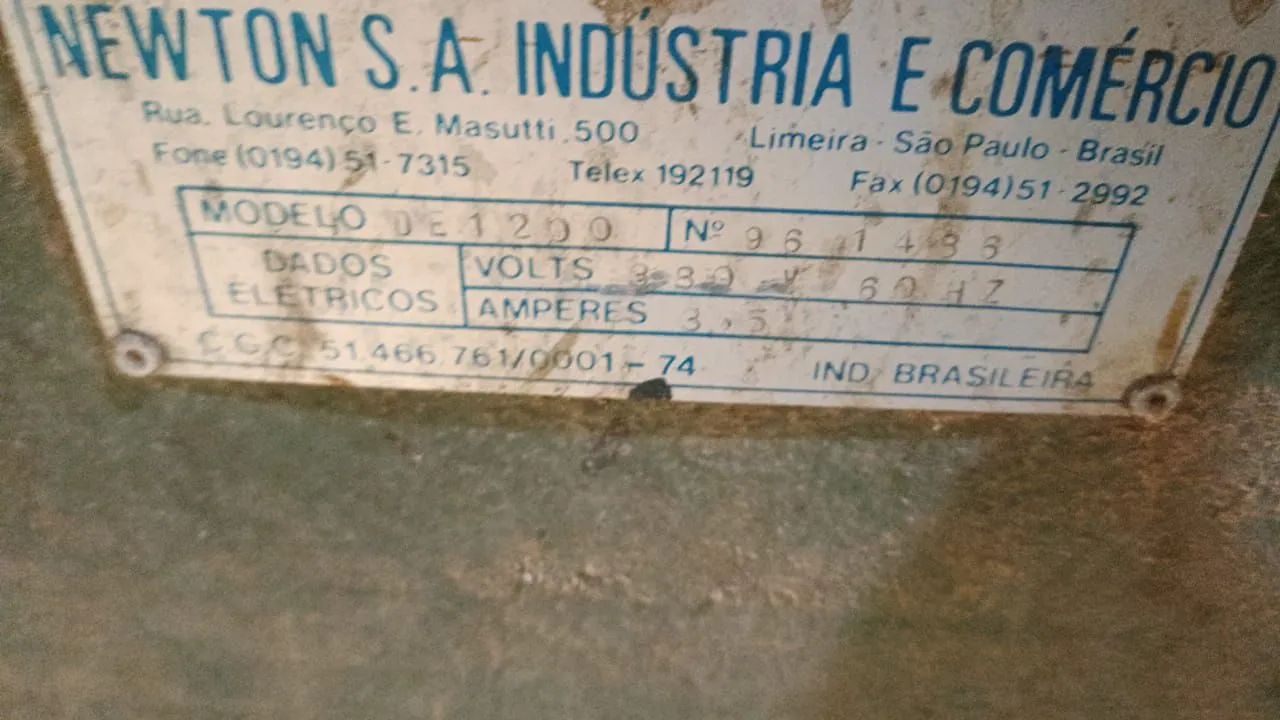 NEWTON S.A. INDÚSTRIA E COMÉRCIO
Rua. Lourenço E. Masutti, 500 Limeira - São Paulo - Brasil
Fone (0194) 51-7315 Telex 192119 Fax (0194) 51-2992
MODELO DE 1200 Nº 96
DADOS ELÉTRICOS
VOLTS 60 HZ
AMPERES 3,5
C.G.C. 51.466.761/0001-74 IND. BRASILEIRA